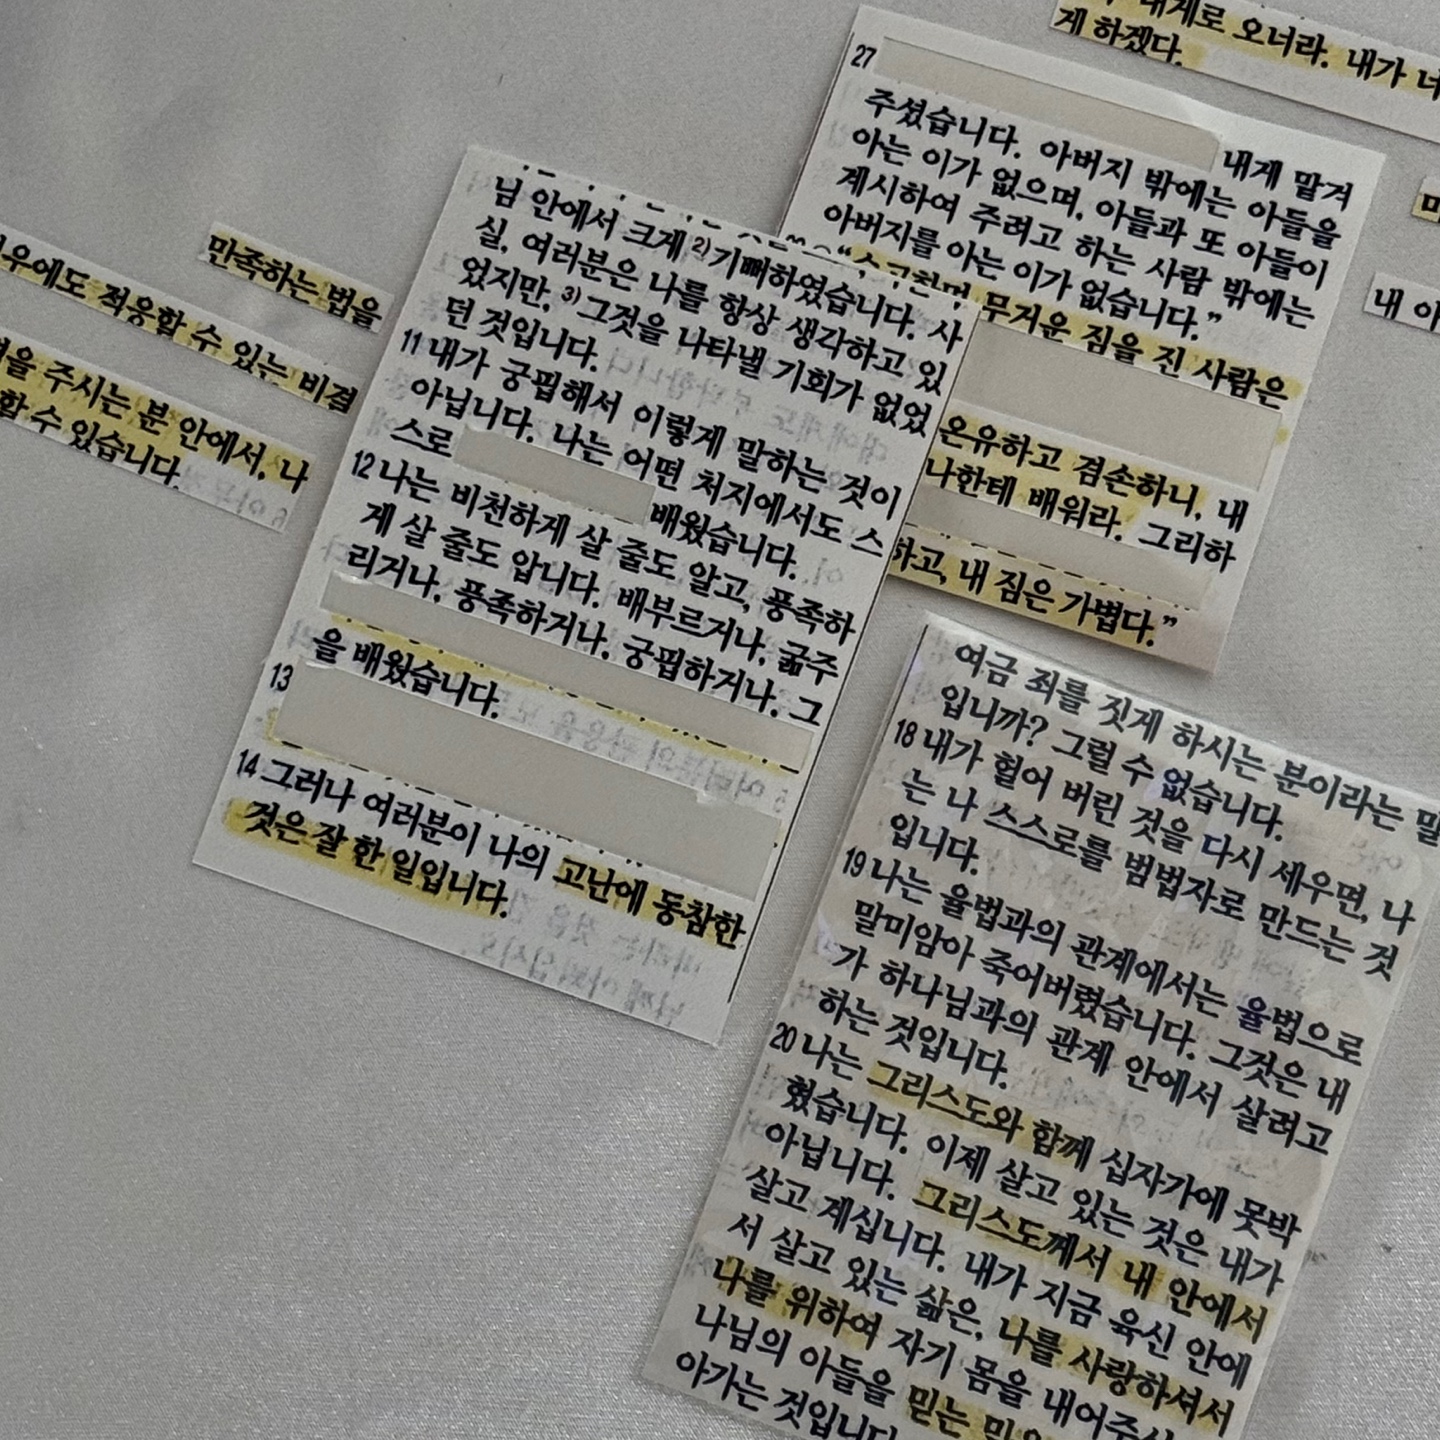 내게로 오너라. 내가 너
게 하겠다.
27
내게 맡겨
주셨습니다. 아버지 밖에는 아들을
아는 이가 없으며, 아들과 또 아들이
계시하여 주려고 하는 사람 밖에는
아버지를 아는 이가 없습니다.”
무거운 짐을 진 사람은
온유하고 겸손하니, 내
나한테 배워라. 그리하
하고, 내 짐은 가볍다.”
내 아
만족하는 법을
우에도 적응할 수 있는 비결
을 주시는 분 안에서, 나
할 수 있습니다.
님 안에서 크게 2)기뻐하였습니다. 사
실, 여러분은 나를 항상 생각하고 있
었지만, 3)그것을 나타낼 기회가 없었
던 것입니다.
11 내가 궁핍해서 이렇게 말하는 것이
아닙니다. 나는 어떤 처지에서도 스
스로 배웠습니다.
12 나는 비천하게 살 줄도 알고, 풍족하
게 살 줄도 압니다. 배부르거나, 굶주
리거나, 풍족하거나, 궁핍하거나, 그
을 배웠습니다.
13
14 그러나 여러분이 나의 고난에 동참한
것은 잘 한 일입니다.
여금 죄를 짓게 하시는 분이라는 말
입니까? 그럴 수 없습니다.
18 내가 헐어 버린 것을 다시 세우면, 나
는 나 스스로를 범법자로 만드는 것
입니다.
19 나는 율법과의 관계에서는 율법으로
말미암아 죽어버렸습니다. 그것은 내
가 하나님과의 관계 안에서 살려고
하는 것입니다.
20 나는 그리스도와 함께 십자가에 못박
혔습니다. 이제 살고 있는 것은 내가
아닙니다. 그리스도께서 내 안에서
살고 계십니다. 내가 지금 육신 안에
서 살고 있는 삶은, 나를 사랑하셔서
나를 위하여 자기 몸을 내어주
나님의 아들을 믿는
아가는 것입니다